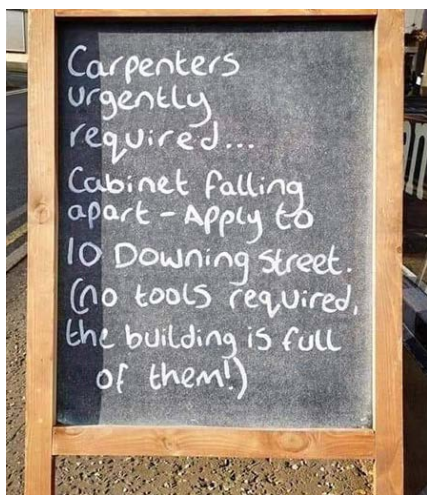 Carpenters
urgently
required...
Cabinet falling
apart - Apply to
10 Downing street.
(no tools required,
the building is full
of them!)